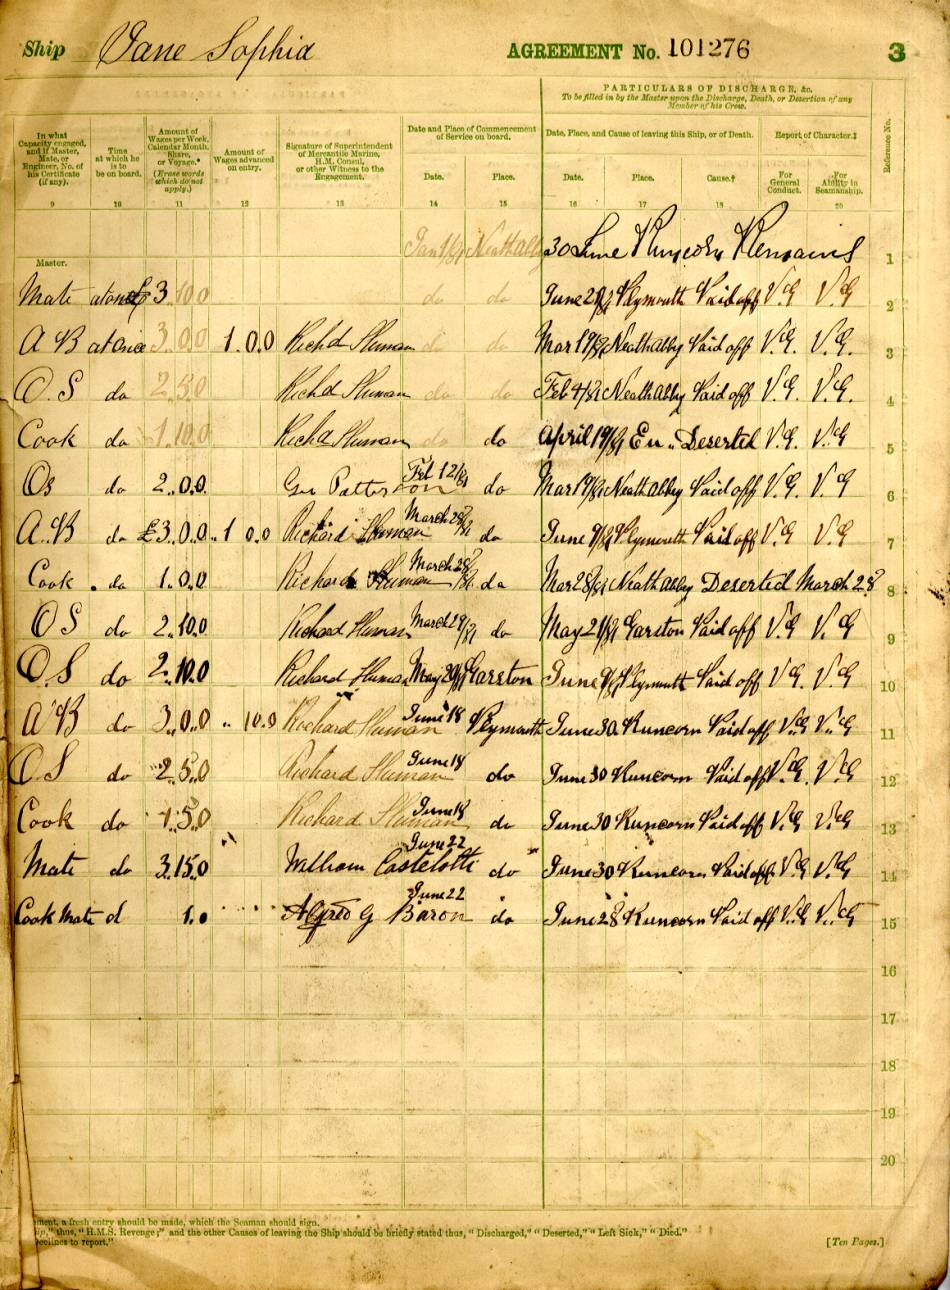 Ship Jane Sophia AGREEMENT No. 101276 3
PARTICULARS OF DISCHARGE, &c.
To be filled in by the Master upon the Discharge, Death, or Desertion of any Member of his Crew.
In what Capacity engaged, and if Master, Mate, or Engineer, No. of his Certificate (if any).
Time at which he is to be on board.
Amount of Wages per Week, Calendar Month, Share, or Voyage.* (Erase words which do not apply.)
Amount of Wages advanced on entry.
Signature of Superintendent of Mercantile Marine, H.M. Consul, or other Witness to the Engagement.
Date and Place of Commencement of Service on board.
Date. Place.
Date, Place, and Cause of leaving this Ship, or of Death.
Date. Place. Cause.†
Report of Character.‡
For General Conduct. For Ability in Seamanship.
Reference No.
9 10 11 12 13 14 15 16 17 18 19 20
Master. Neath abby 30 June Runcorn Remains 1
Mate at once 3 10 0 do do June Plymouth Paid off V.G V.G 2
A B at once 3..0.0 1.0.0 Richd Sluman do do Mar 19/81 Neath abby Paid off V.G. V.G. 3
O.S do 2 5 0 Richd Sluman do do Feb 4/81 Neath abby Paid off V.G V.G. 4
Cook do 1.10.0 Richd Sluman do do April 19/81 Deserted V.G V.G 5
Os do 2..0.0. Geo Patterson Feb 12/81 do Mar 19/81 Neath abby Paid off V.G. V.G 6
A..B do £3..0.0.. 1 0.0 Richard Sluman March 28/81 do June 9/81 Plymouth Paid off V.G V.G 7
Cook . do 1.0.0 Richard Sluman March 28/81 do Mar 28/81 Neath abby Deserted March 28 8
O S do 2..10.0 Richard Sluman March 29/81 do May 21/81 Garston Paid off V.G V.G 9
O.S do 2..10.0 Richard Sluman May 20/81 Garston June 9/81 Plymouth Paid off V.G. V.G. 10
A'B do 3..0.0 .. 10.0 Richard Sluman June 18 Plymouth June 30 Runcorn Paid off V.G V.G 11
O S do 2 5..0 Richard Sluman June 18 do June 30 Runcorn Paid off V.G. V.G 12
Cook do 1.5.0 Richard Sluman June 18 do June 30 Runcorn Paid off V.G V.G 13
Mate do 3.15.0 William Costelotti June 22 do June 30 Runcorn Paid off V.G V.G 14
Cook Mate d 1.0 Alfred G Baron June 22 do June 28 Runcorn Paid off V.G V.G 15
16
17
18
19
20
ment, a fresh entry should be made, which the Seaman should sign.
ip," thus, "H.M.S. Revenge;" and the other Causes of leaving the Ship should be briefly stated thus, "Discharged," "Deserted," "Left Sick," "Died."
Declines to report."
[Ten Pages.]